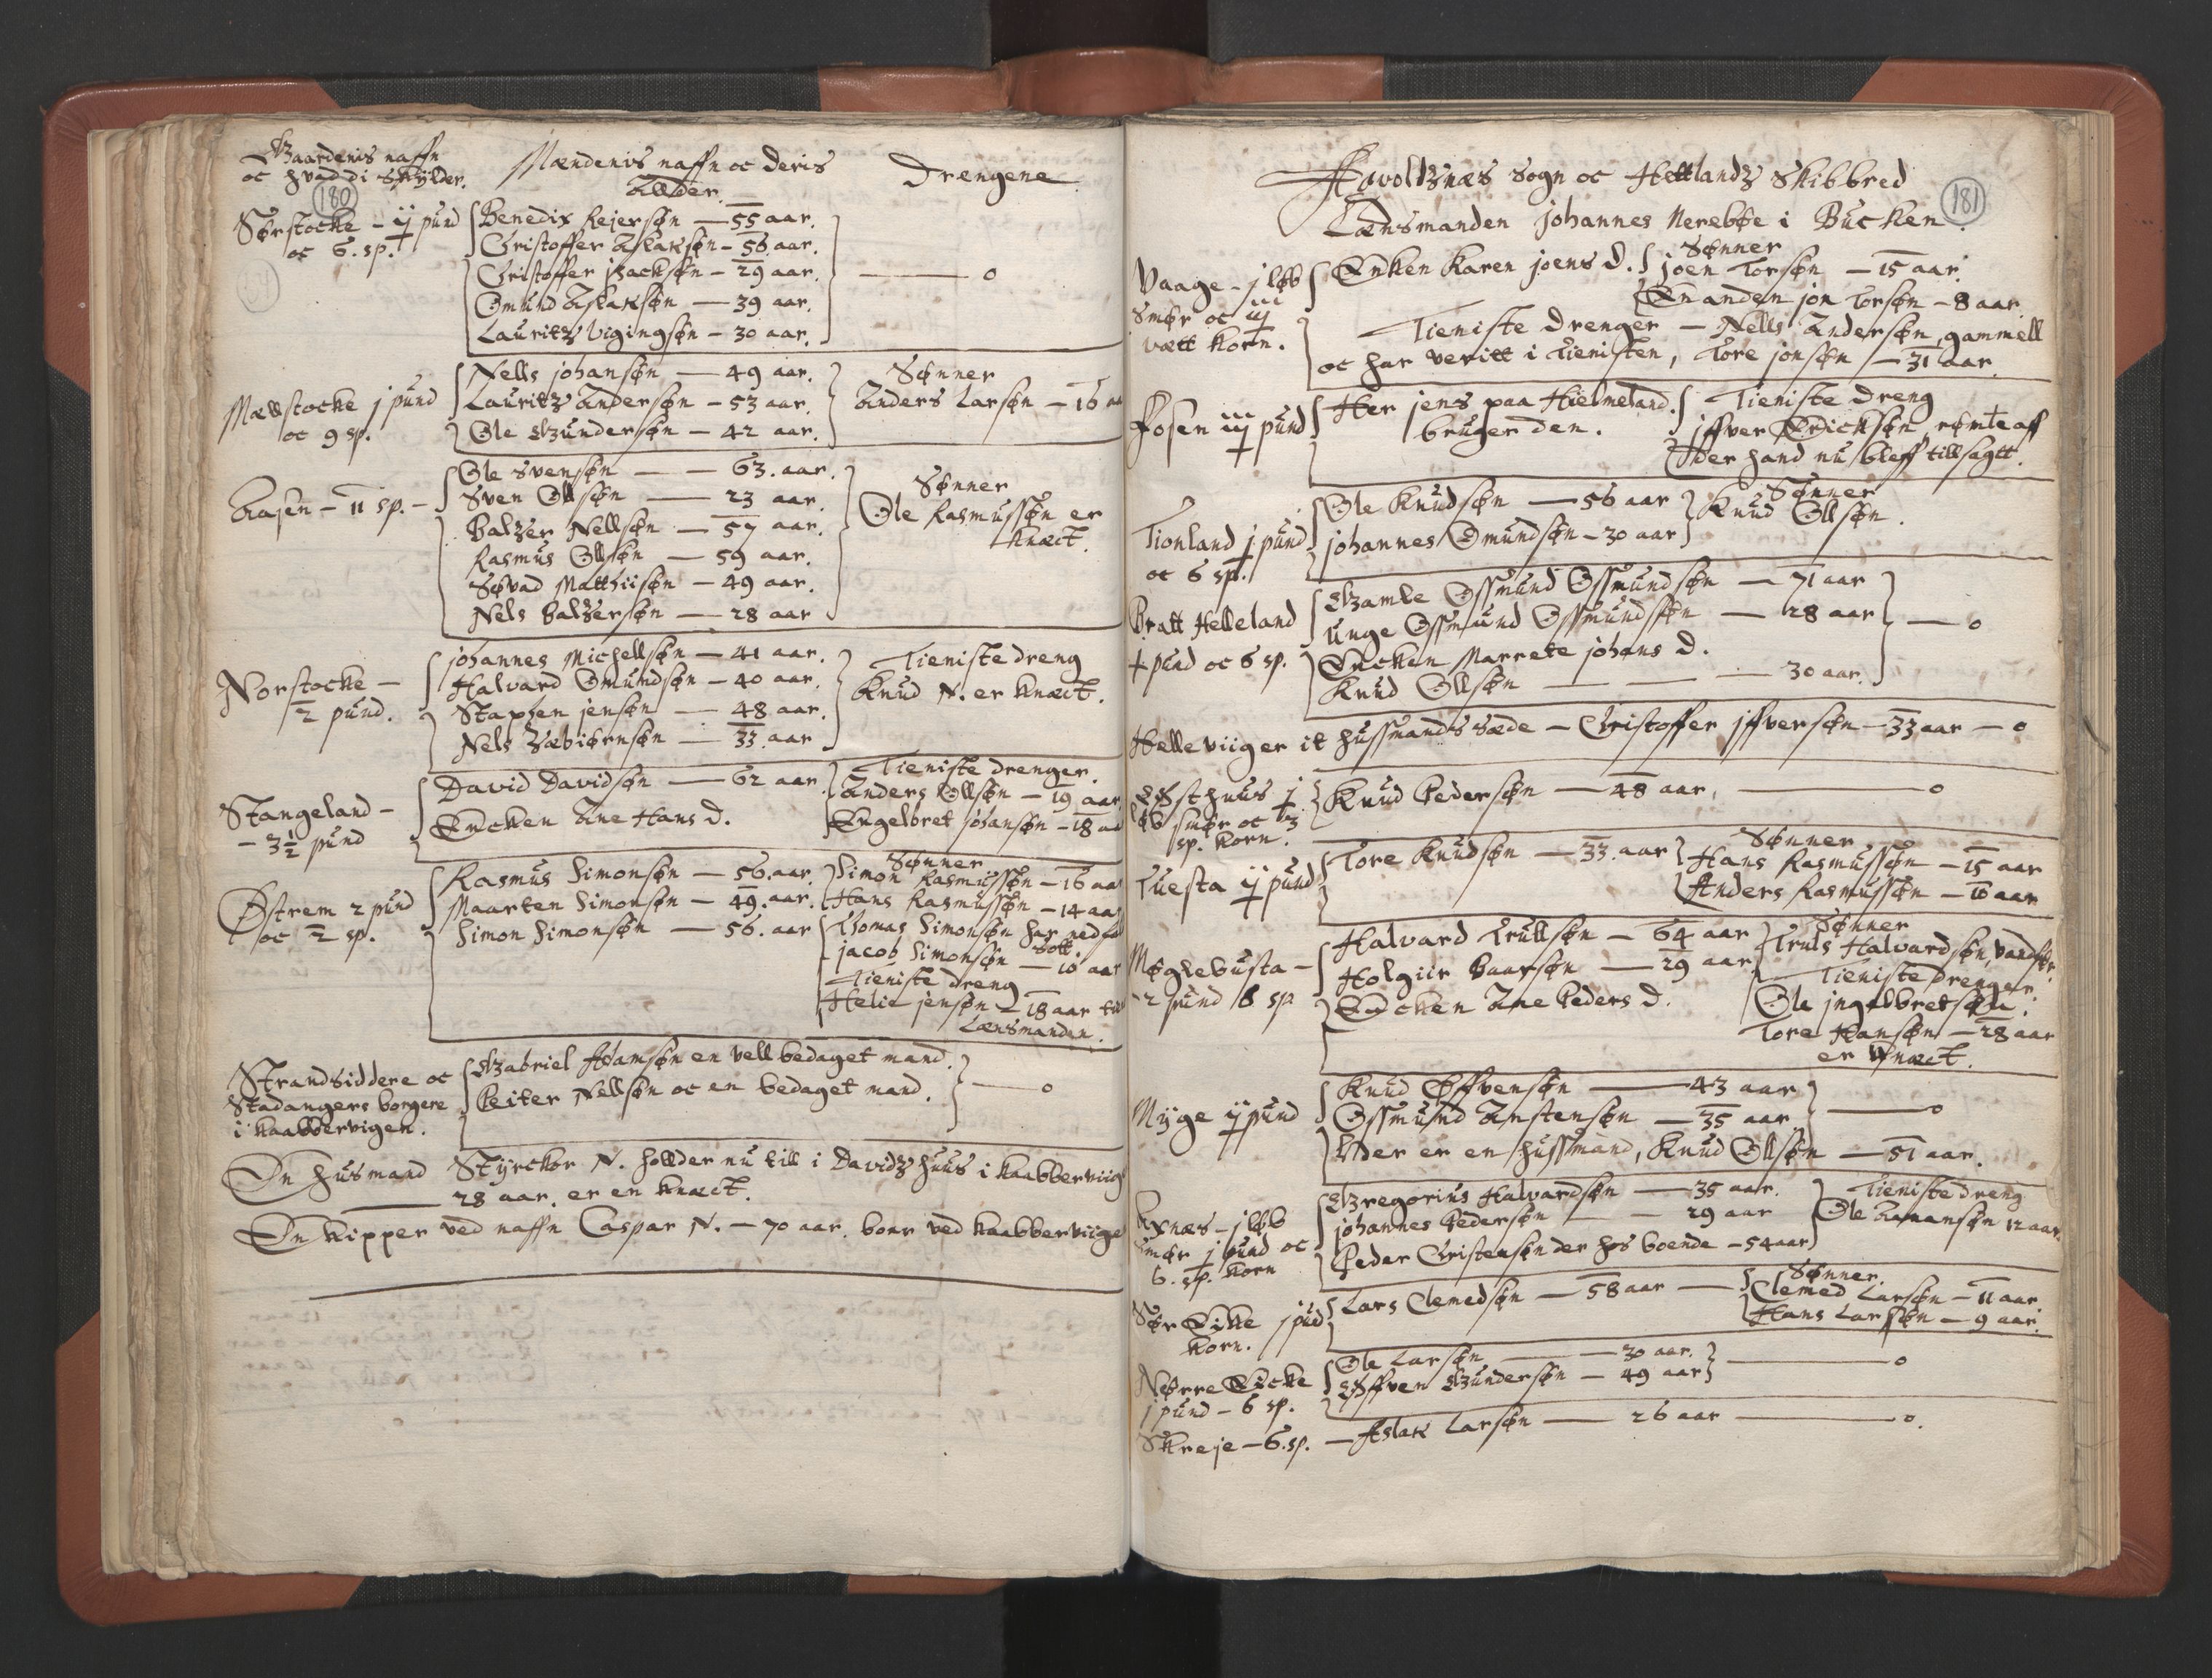 Gaardenis naffn
oc hvad di Skylder.
Mændenis naffn oc deris
Allder.
Drengene
180
Sørstocke - ij pund
oc 6. sp.
Benedix Rejersøn — 55 aar.
Christoffer Aslaksøn - 56 aar.
Christoffer jsacksøn - 29 aar.
Omund Aslaksøn — 39 aar.
Lauritz Vigingsøn - 30 aar.
— 0
Mællstocke j pund
oc 9 sp.
Nells johansøn — 49 aar.
Lauritz Andersøn - 53 aar.
Ole Gundersøn - 42 aar.
Sønner
Anders Larsøn - 16 aa
Aasen - 11 sp. -
Ole Svensøn — 63. aar.
Sven Ollsøn — 23 aar.
Balzer Nellsøn — 57 aar.
Rasmus Ollsøn — 59 aar.
Søvad Matthiisøn - 49 aar.
Nels Balzersøn — 28 aar
Sønner
Ole Rasmussøn er
Knect.
Norstocke -
2 pund.
johannes Michellsøn - 41 aar.
Halvard Omundsøn - 40 aar.
Staphen jensøn — 48 aar.
Nels Sæbiørnsøn — 33 aar
Tieniste dreng
Knud N. er Knect.
Stangeland -
- 3 1/2 pund
David Davidsøn — 62 aar
Encken Ane Hans d.
Tieniste drenger.
Anders Ollsøn - 19 aar
Engelbret johansøn - 18 aa
Østrem 2 pund
oc 2 sp.
Rasmus Simonsøn - 56. aar.
Maarten Simonsøn - 49. aar.
Simon Simonsøn — 56. aar
Sønner
Simon Rasmussøn - 16 aa
Hans Rasmussøn - 14 aa
Thomas Simonsøn har ned
Sott.
jacob Simonsøn — 10 aar
Tieniste dreng
Helie jensøn - 18 aar
Lænsmanden.
Strandsiddere oc
Stadangers borgere
i Kaabbervigen.
Gabriel Adamsøn en vell bedaget mand.
Peiter Nellsøn oc en bedaget mand.
— 0
En husmand Styrckor N. hollder nu till i Davidz huus i Kaabberviig
28 aar. er en Knect.
En Kipper ved naffn Caspar N. - 70 aar. boer ved Kaabberviige
Havoldznæs Sogn oc Hettlandz Skibbred
181
Lænsmanden johannes Nerebøe i Bucken.
Vaage - j løb
Smør oc iij
vætt Korn.
Enken Karen joens d.
Sønner
joen Torsøn — 15 aar.
En anden jon Torsøn - 8 aar.
Tieniste drenger — Nells Andersøn, gammell
oc har veritt i Tienisten, Tore jonsøn — 31 aar.
Fosen iij pund
Her jens paa Hielmeland.
bruger den.
Tieniste dreng
jffver Erichsøn rømte aff
der hand nu bleff tillsagtt.
Tionland j pund
oc 6 sp.
Ole Knudsøn — 56 aar
johannes Omundsøn - 30 aar
Sønner
Knud Ollsøn.
Bratt Helleland
pund oc 6 sp.
Gamle Ossmund Ossmundsøn — 71 aar
Unge Ossmund Ossmundsøn — 28 aar
Encken Marrete johans d.
Knud Ollsøn — 30 aar.
— 0
Helleviig er it hussmands sæde - Christoffer jffversøn - 33 aar — 0
Østhuus j
løb smør oc 3
sp. Korn.
Knud Pedersøn — 48 aar, — 0
Tuesta ij pund
Tore Knudsøn — 33. aar
Sønner
Hans Rasmussøn - 15 aar
Anders Rasmussøn - 10 aar
Møglebusta -
- 2 pund 8 sp
Halvard Trullsøn - 64 aar
Holgiir Baarsøn — 29 aar
Encken Ane Peders d.
Sønner
Truls Halvardsøn,
Tieniste drenger.
Ole jngelbretsøn.
Tore Hansøn - 28 aar
er Knect.
Myge ij pund
Knud Øffvensøn — 43 aar
Ossmund Anstensøn — 35 aar
— 0
Der er en hussmand, Knud Ollsøn — 51 aar.
Rxnæs - j løb
smør j pund oc
6. sp. Korn
Gregorius Halvardsøn — 35 aar.
johannes Pedersøn — 29 aar
Peder Christensøn der hos boende - 54 aar
Tieniste dreng
Ole Amansøn 12 aar.
Sør Eike j pud
Korn.
Lars Clemedsøn — 58 aar —
Sønner.
Clemed Larsøn - 11 aar.
Hans Larssøn - 9 aar.
Nørre Eicke
j pund - 6 sp.
Ole Larsøn — 30 aar.
Øffven Gundersøn - 49 aar
— 0
Skreje - 6. sp. — Aslak Larsøn — 26 aar — 0.